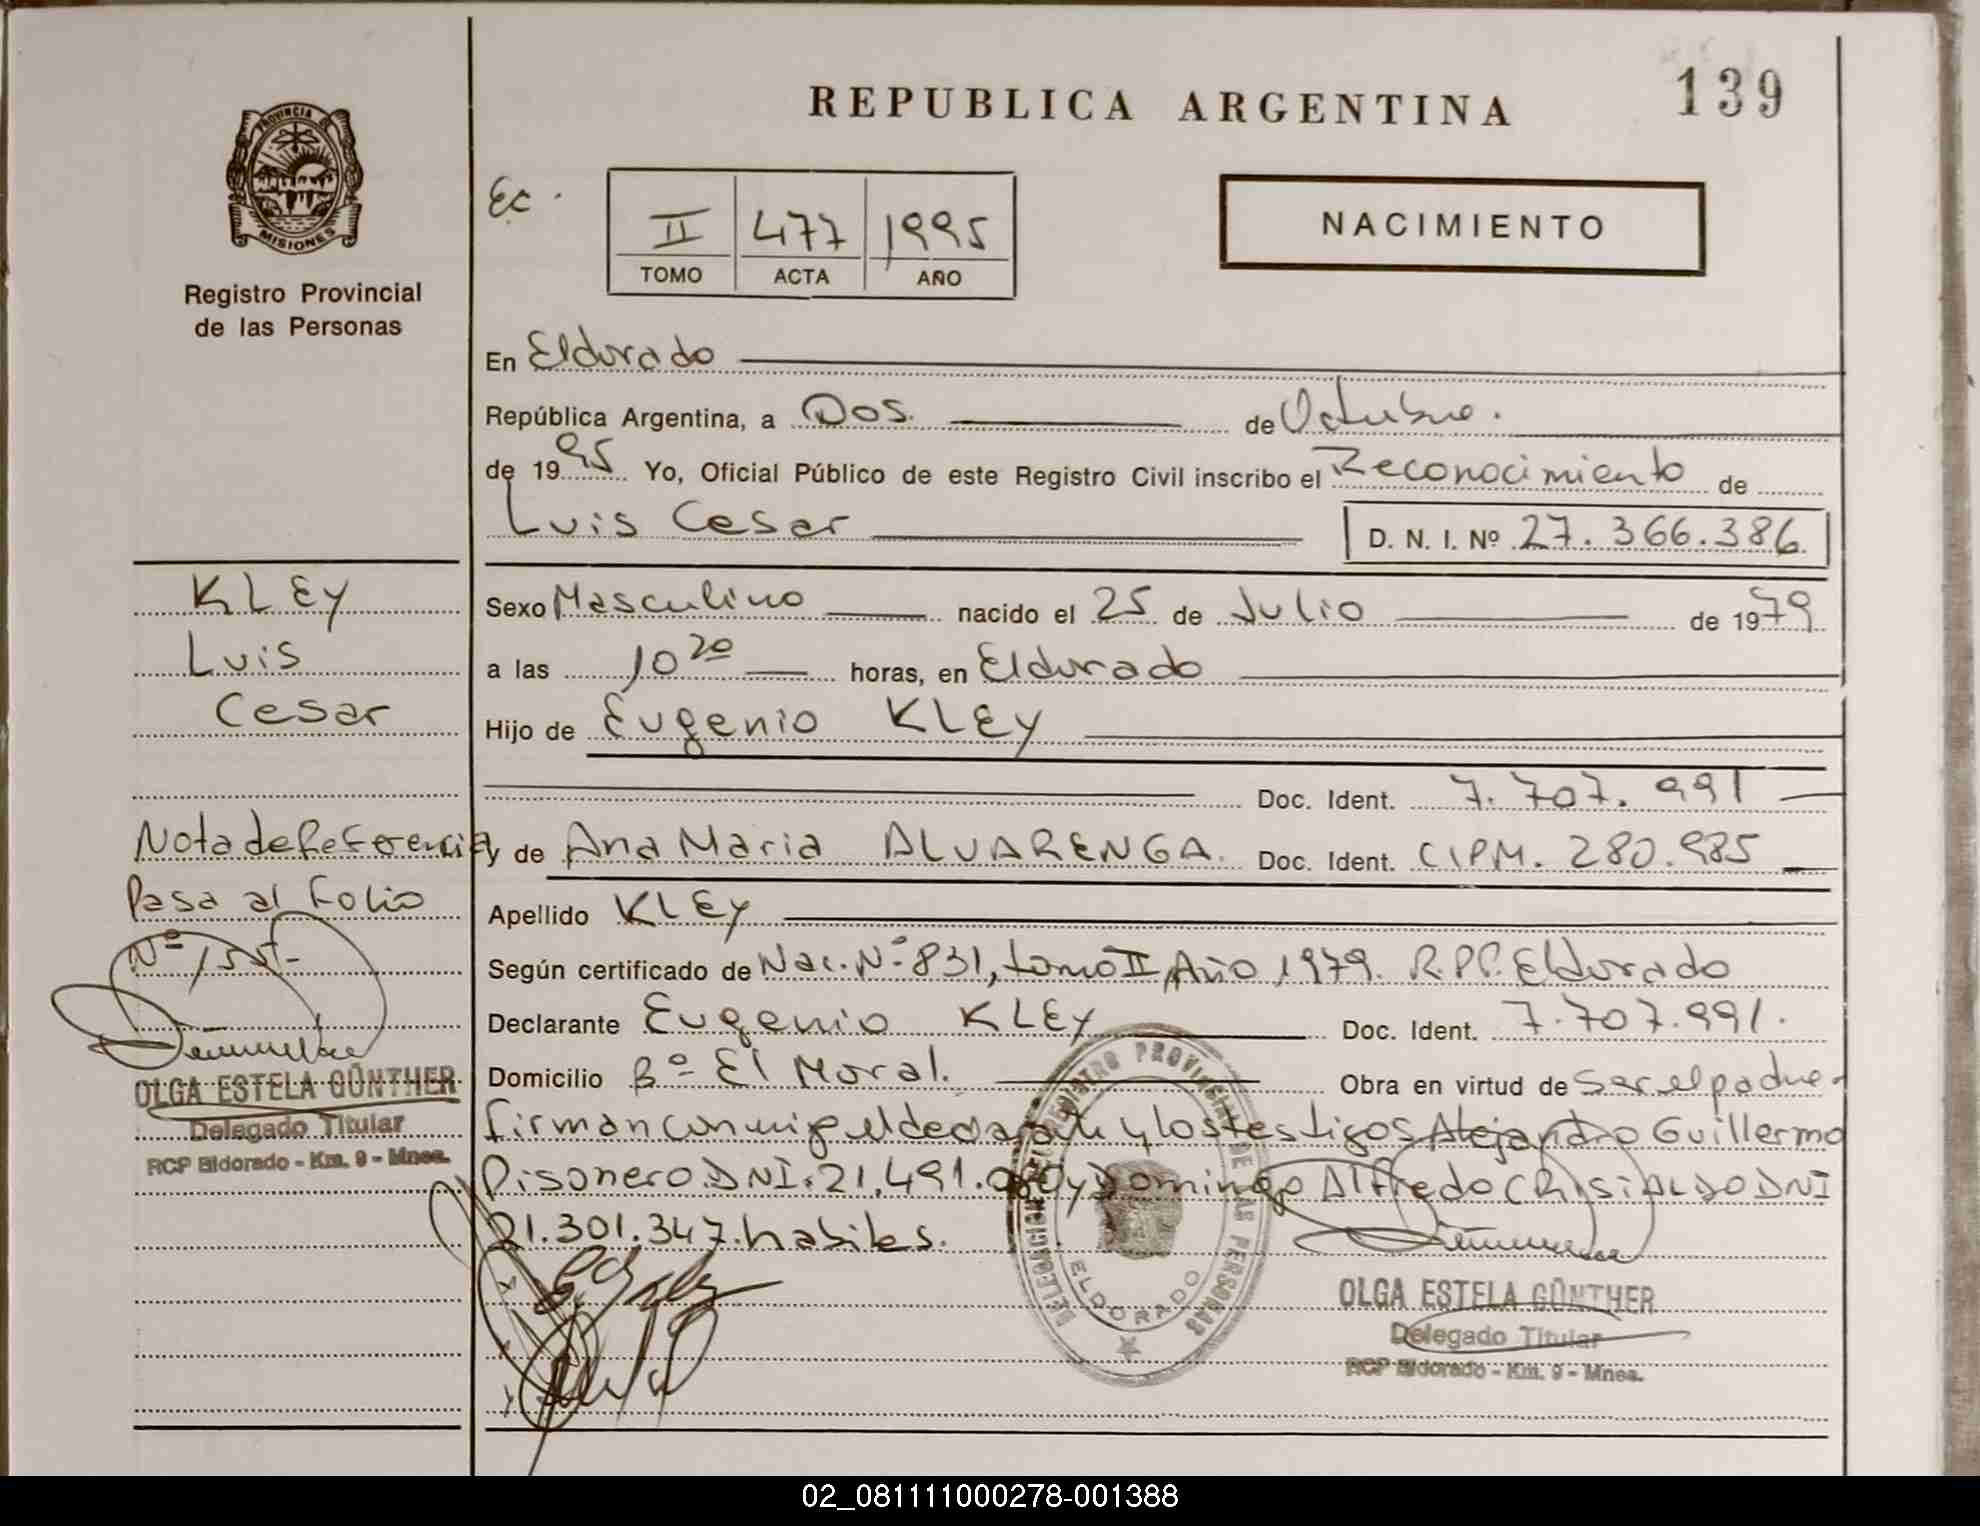 139
REPUBLICA ARGENTINA
PROVINCIA DE
MISIONES
Registro Provincial
de las Personas
Ec.
II 477 1995
TOMO ACTA AÑO
NACIMIENTO
En Eldorado
República Argentina, a Dos. de Octubre.
de 1995 Yo, Oficial Público de este Registro Civil inscribo el Reconocimiento de
Luis Cesar D. N. I. Nº 27.366.386.
KLEY
Luis
Cesar
Sexo Masculino nacido el 25 de Julio de 1979
a las 10 20 horas, en Eldorado
Hijo de Eugenio KLEY
Doc. Ident. 7.707.991
y de Ana Maria ALVARENGA. Doc. Ident. CIPM. 280.985
Apellido KLEY
Según certificado de Nac. Nº 831, tomo II, Año 1979. R.P.P. Eldorado
Declarante Eugenio KLEY Doc. Ident. 7.707.991.
Domicilio Bº El Moral. Obra en virtud de ser el padre-
firman conmigo el declarante y los testigos Alejandro Guillermo
Disonero DNI. 21.491. y Domingo Alfredo CRISIALDO DNI
21.301.347. habiles.
Nota de Referencia
Pasa al Folio
Nº 155-
OLGA ESTELA GÜNTHER
Delegado Titular
RCP Eldorado - Km. 9 - Mnes.
DELEGACION REGISTRO PROVINCIAL DE LAS PERSONAS
ELDORADO
OLGA ESTELA GÜNTHER
Delegado Titular
RCP Eldorado - Km. 9 - Mnes.
02_081111000278-001388